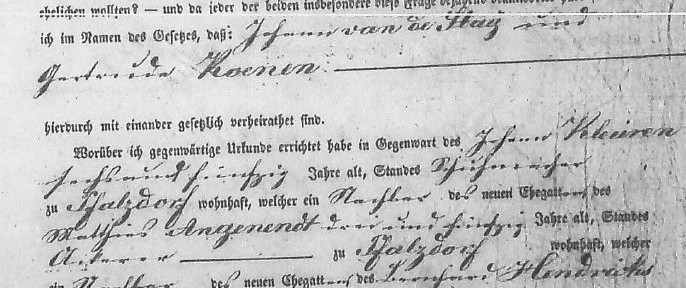 ehelichen wollten? — und da jeder der beiden insbesondere diese Frage bejahend
ich im Namen des Gesetzes, daß: Johann van de Flag und
Gertrude Koenen. —
hierdurch mit einander gesetzlich verheirathet sind.
Worüber ich gegenwärtige Urkunde errichtet habe in Gegenwart des Johann
sechs und fünfzig Jahre alt, Standes Schuhmacher
zu Pfalzdorf wohnhaft, welcher ein Nachbar des neuen Ehegatten, des
Matthias Angenendt drei und fünfzig Jahre alt, Standes
Ackerer — zu Pfalzdorf wohnhaft, welcher
ein Nachbar des neuen Ehegatten, des Bernhard Hendricks